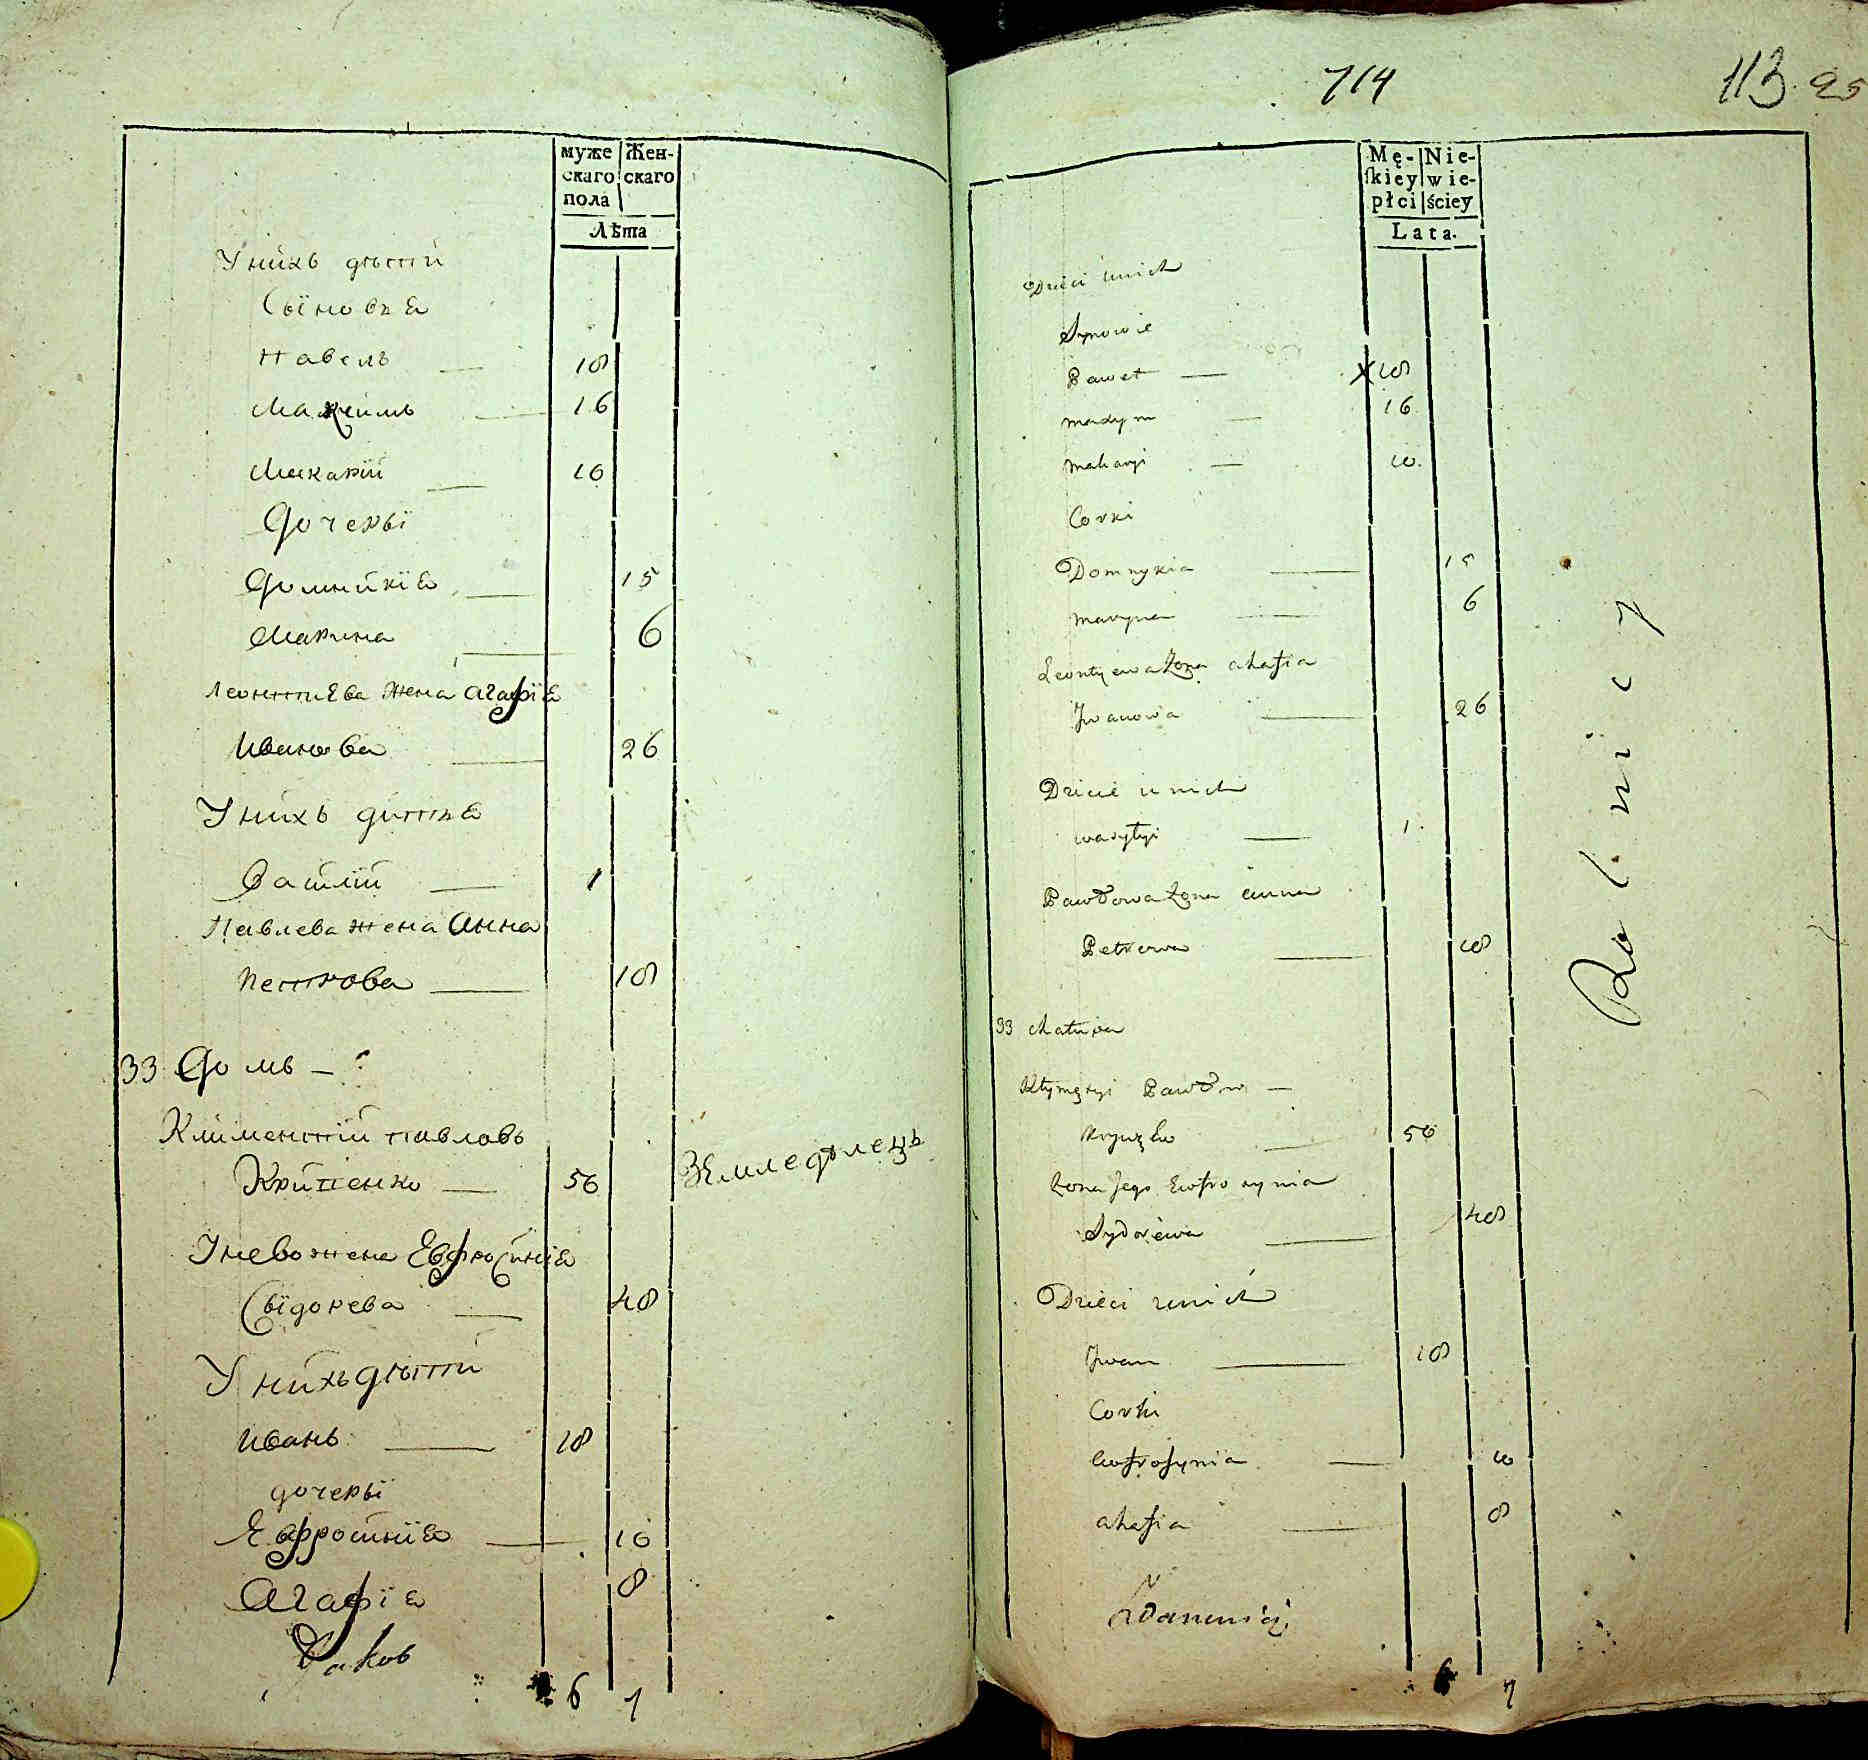 муже
скаго
пола
Жен-
скаго
Лѣта
У нихъ дѣтти
Сыновья
Павелъ — 18
Максимъ — 16
Макарiй — 10
Дочеры
Домникiя — 15
Марина — 6
Леонттiева жена Агафiя
Иванова — 26
У нихъ диття
Василiй — 1
Павлева жена Анна
Петтрова — 18
33 Домъ —
Климентiй Павловъ
Крипенко — 56 Земледѣлецъ
У него жена Евфросинiя
Сыдорева — 48
У нихъ дѣтти
Иванъ — 18
дочеры
Евфросинiя — 10
Агафiя 8
Яков
6 7
714
113 95
Mę-
ſkiey
płci
Nie-
wie-
ściey
Lata.
Dzieci u nich
Synowie
Paweł — 18
Maxym — 16
Makaryi — 10
Corki
Domnykia — 15
Maryna — 6
Leontyewa Zona Ahafia
Jwanowa — 26
Dziecie u nich
Wasylyi — 1
Pawłowa Zona Anna
Petrowa — 18
33 Chałupa
Klymętyi Pawłow —
56
Zona Jego Ewfrosynia
Sydorewa — 48
Dzieci u nich
Jwan — 18
Corki
Ewfrosynia — 10
Ahafia — 8
6 7
Rolnicy